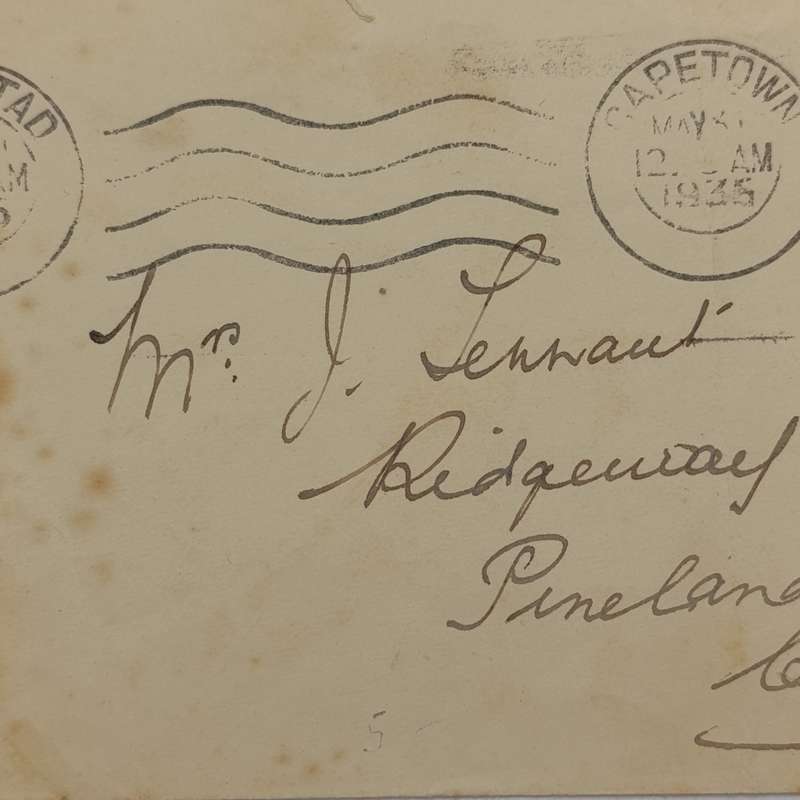 TAD
AM
CAPETOWN
MAY 31
12. AM
1935
Mr. J. Tennant
Ridgeway
Pineland
C
5